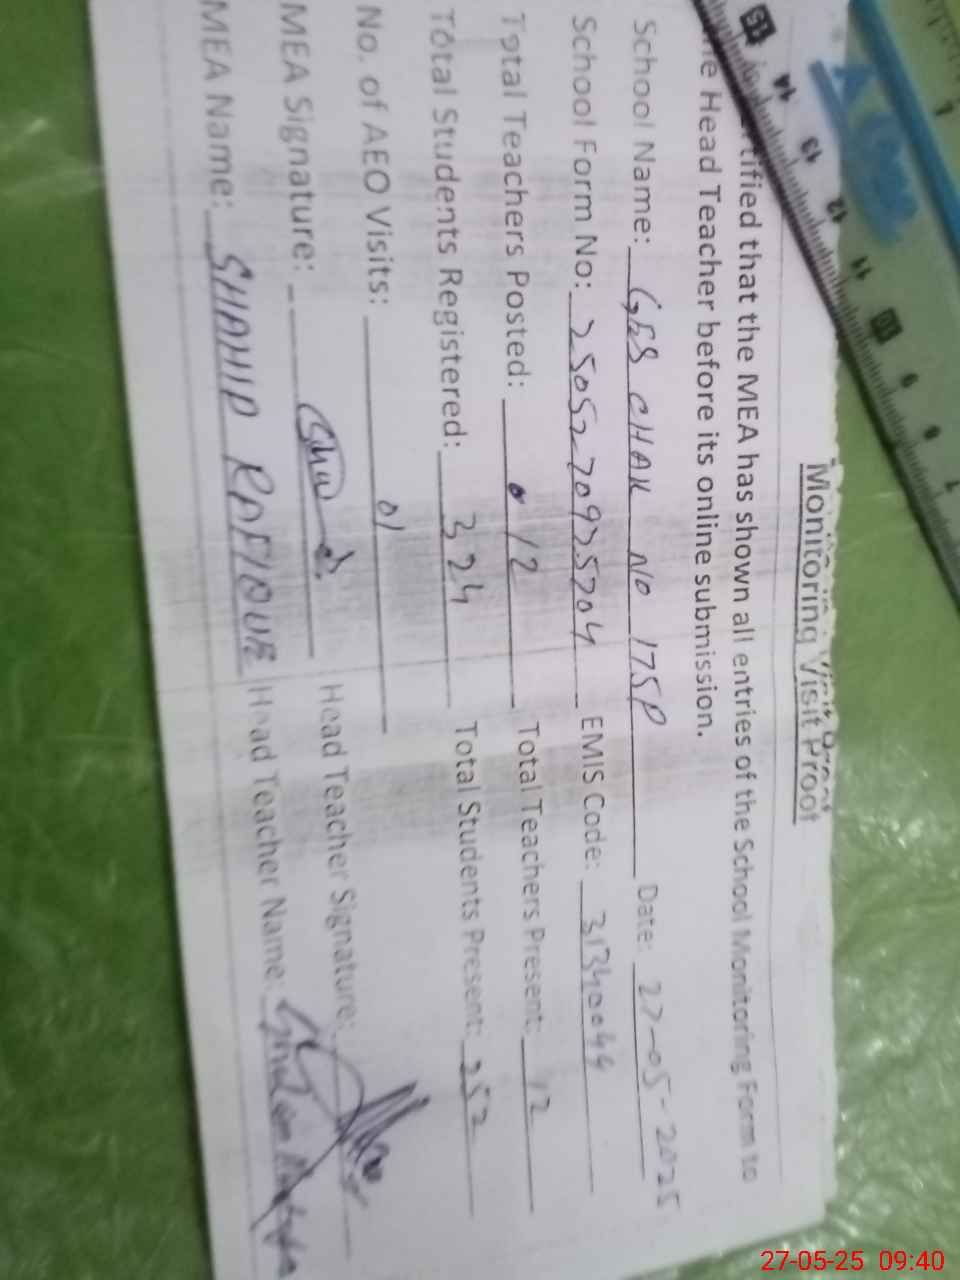 Monitoring Visit Proof
tified that the MEA has shown all entries of the School Monitoring Form to
he Head Teacher before its online submission.
School Name: GES CHAK NO 175P Date: 27-05-2025
School Form No: EMIS Code: 31340044
Total Teachers Posted: 12 Total Teachers Present: 12
Total Students Registered: 324 Total Students Present: 252
No. of AEO Visits: 01
MEA Signature: Head Teacher Signature:
MEA Name: SHAHID RAFIQUE Head Teacher Name:
27-05-25 09:40